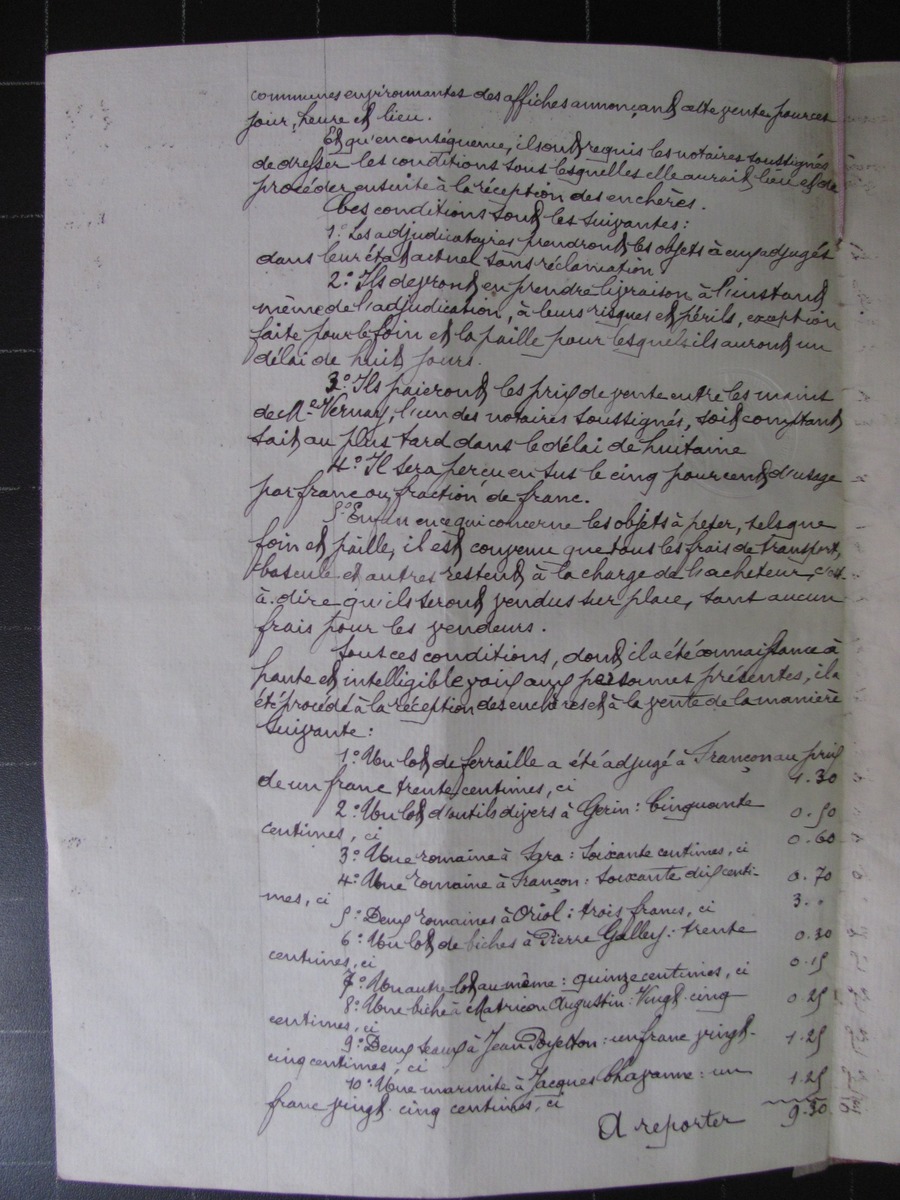 communes environnantes des affiches annonçant cette vente pour ces
jour, heure et lieu.
Et qu'en conséquence, ils ont requis les notaires soussignés
de dresser les conditions sous lesquelles elle aurait lieu et de
procéder ensuite à la réception des enchères.
Ces conditions sont les suivantes :
1° Les adjudicataires prendront les objets à eux adjugés
dans leur état actuel sans réclamation
2° Ils devront en prendre livraison à l'instant
même de l'adjudication, à leurs risques et périls, exception
faite pour le foin et la paille pour lesquels ils auront un
délai de huit jours.
3° Ils paieront les prix de vente entre les mains
de Me Vernay, l'un des notaires soussignés, soit comptant
soit au plus tard dans le délai de huitaine
4° Il sera perçu en sus le cinq pour cent d'usage
par franc ou fraction de franc.
5° Enfin en ce qui concerne les objets à peser, tels que
foin et paille, il est convenu que tous les frais de transport,
bascule et autres restent à la charge de l'acheteur, c'est-
à-dire qu'ils seront vendus sur place, sans aucun
frais pour les vendeurs.
Sous ces conditions, dont il a été connaissance à
haute et intelligible voix aux personnes présentes, il a
été procédé à la réception des enchères et à la vente de la manière
suivante :
1° Un lot de ferraille a été adjugé à Françon au prix
de un franc trente centimes, ci 1.30
2° Un lot d'outils divers à Gerin : Cinquante
centimes, ci 0.50
3° Une romaine à Jara : soixante centimes, ci 0.60
4° Une romaine à Françon : soixante dix centi-
mes, ci 0.70
5° Deux romaines à Oriol : trois francs, ci 3. "
6° Un lot de biches à Pierre Galley : trente
centimes, ci 0.30
7° Un autre lot au même : quinze centimes, ci 0.15
8° Une biche à Matricon Augustin : Vingt-cinq
centimes, ci 0.25
9° Deux seaux à Jean : un franc vingt-
cinq centimes, ci 1.25
10° Une marmite à Jacques Chavanne : un
franc vingt-cinq centimes, ci 1.25
A reporter 9.30